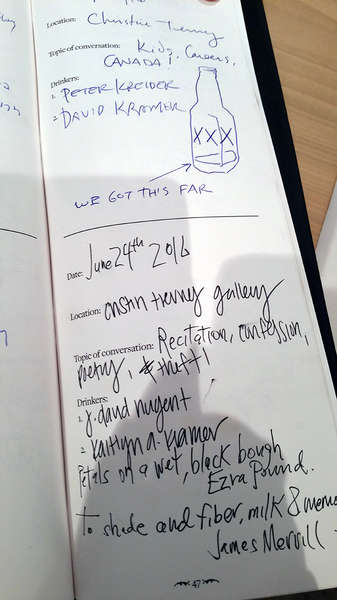 Location: Christine Tierney
Topic of conversation: Kids, Careers,
CANADA!
Drinkers:
1. PETER KREIDER
2. DAVID KRAMER
XXX
WE GOT THIS FAR
Date: June 24th 2016
Location: cristin tierney gallery
Topic of conversation: Recitation, confession,
poetry, & theft!
Drinkers:
1. J. david nugent
2. kaitlyn a. kramer
Petals on a wet, black bough
Ezra Pound.
To shade and fiber, milk &
James Merrill
47